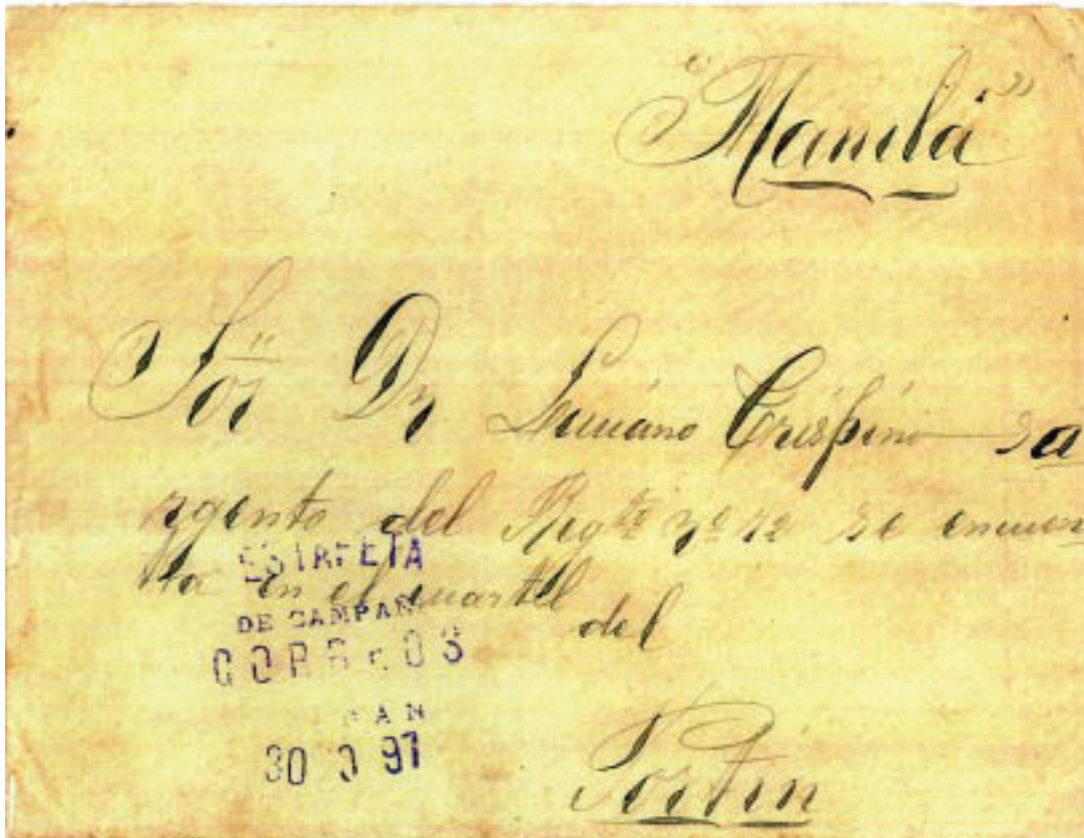 "Manila"
Sor Dn Luciano Crispino sa
rgento del Regto nº 72 se encuen
tra en el cuartel
del
Fortin
ESTAFETA
DE CAMPAÑA
CORREOS
30 97